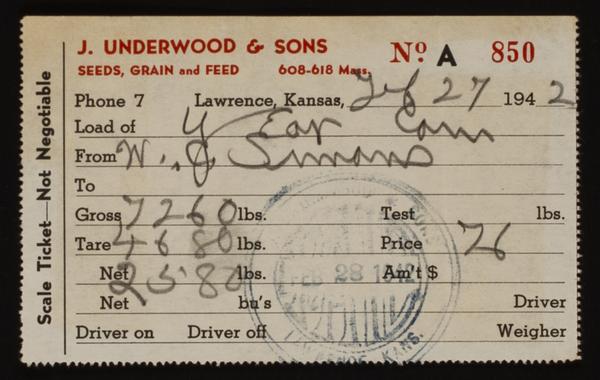 J. UNDERWOOD & SONS
SEEDS, GRAIN and FEED 608-618 Mass.
No A 850
Phone 7 Lawrence, Kansas, Feb 27 1942
Load of Y Ear Corn
From W. J. Simons
To
Gross 7260 lbs. Test lbs.
Tare 4680 lbs. Price 76
Net 2580 lbs. Am't $
Net bu's Driver
Driver on Driver off Weigher
Scale Ticket—Not Negotiable
FEB 28 1942
LAWRENCE, KANS.